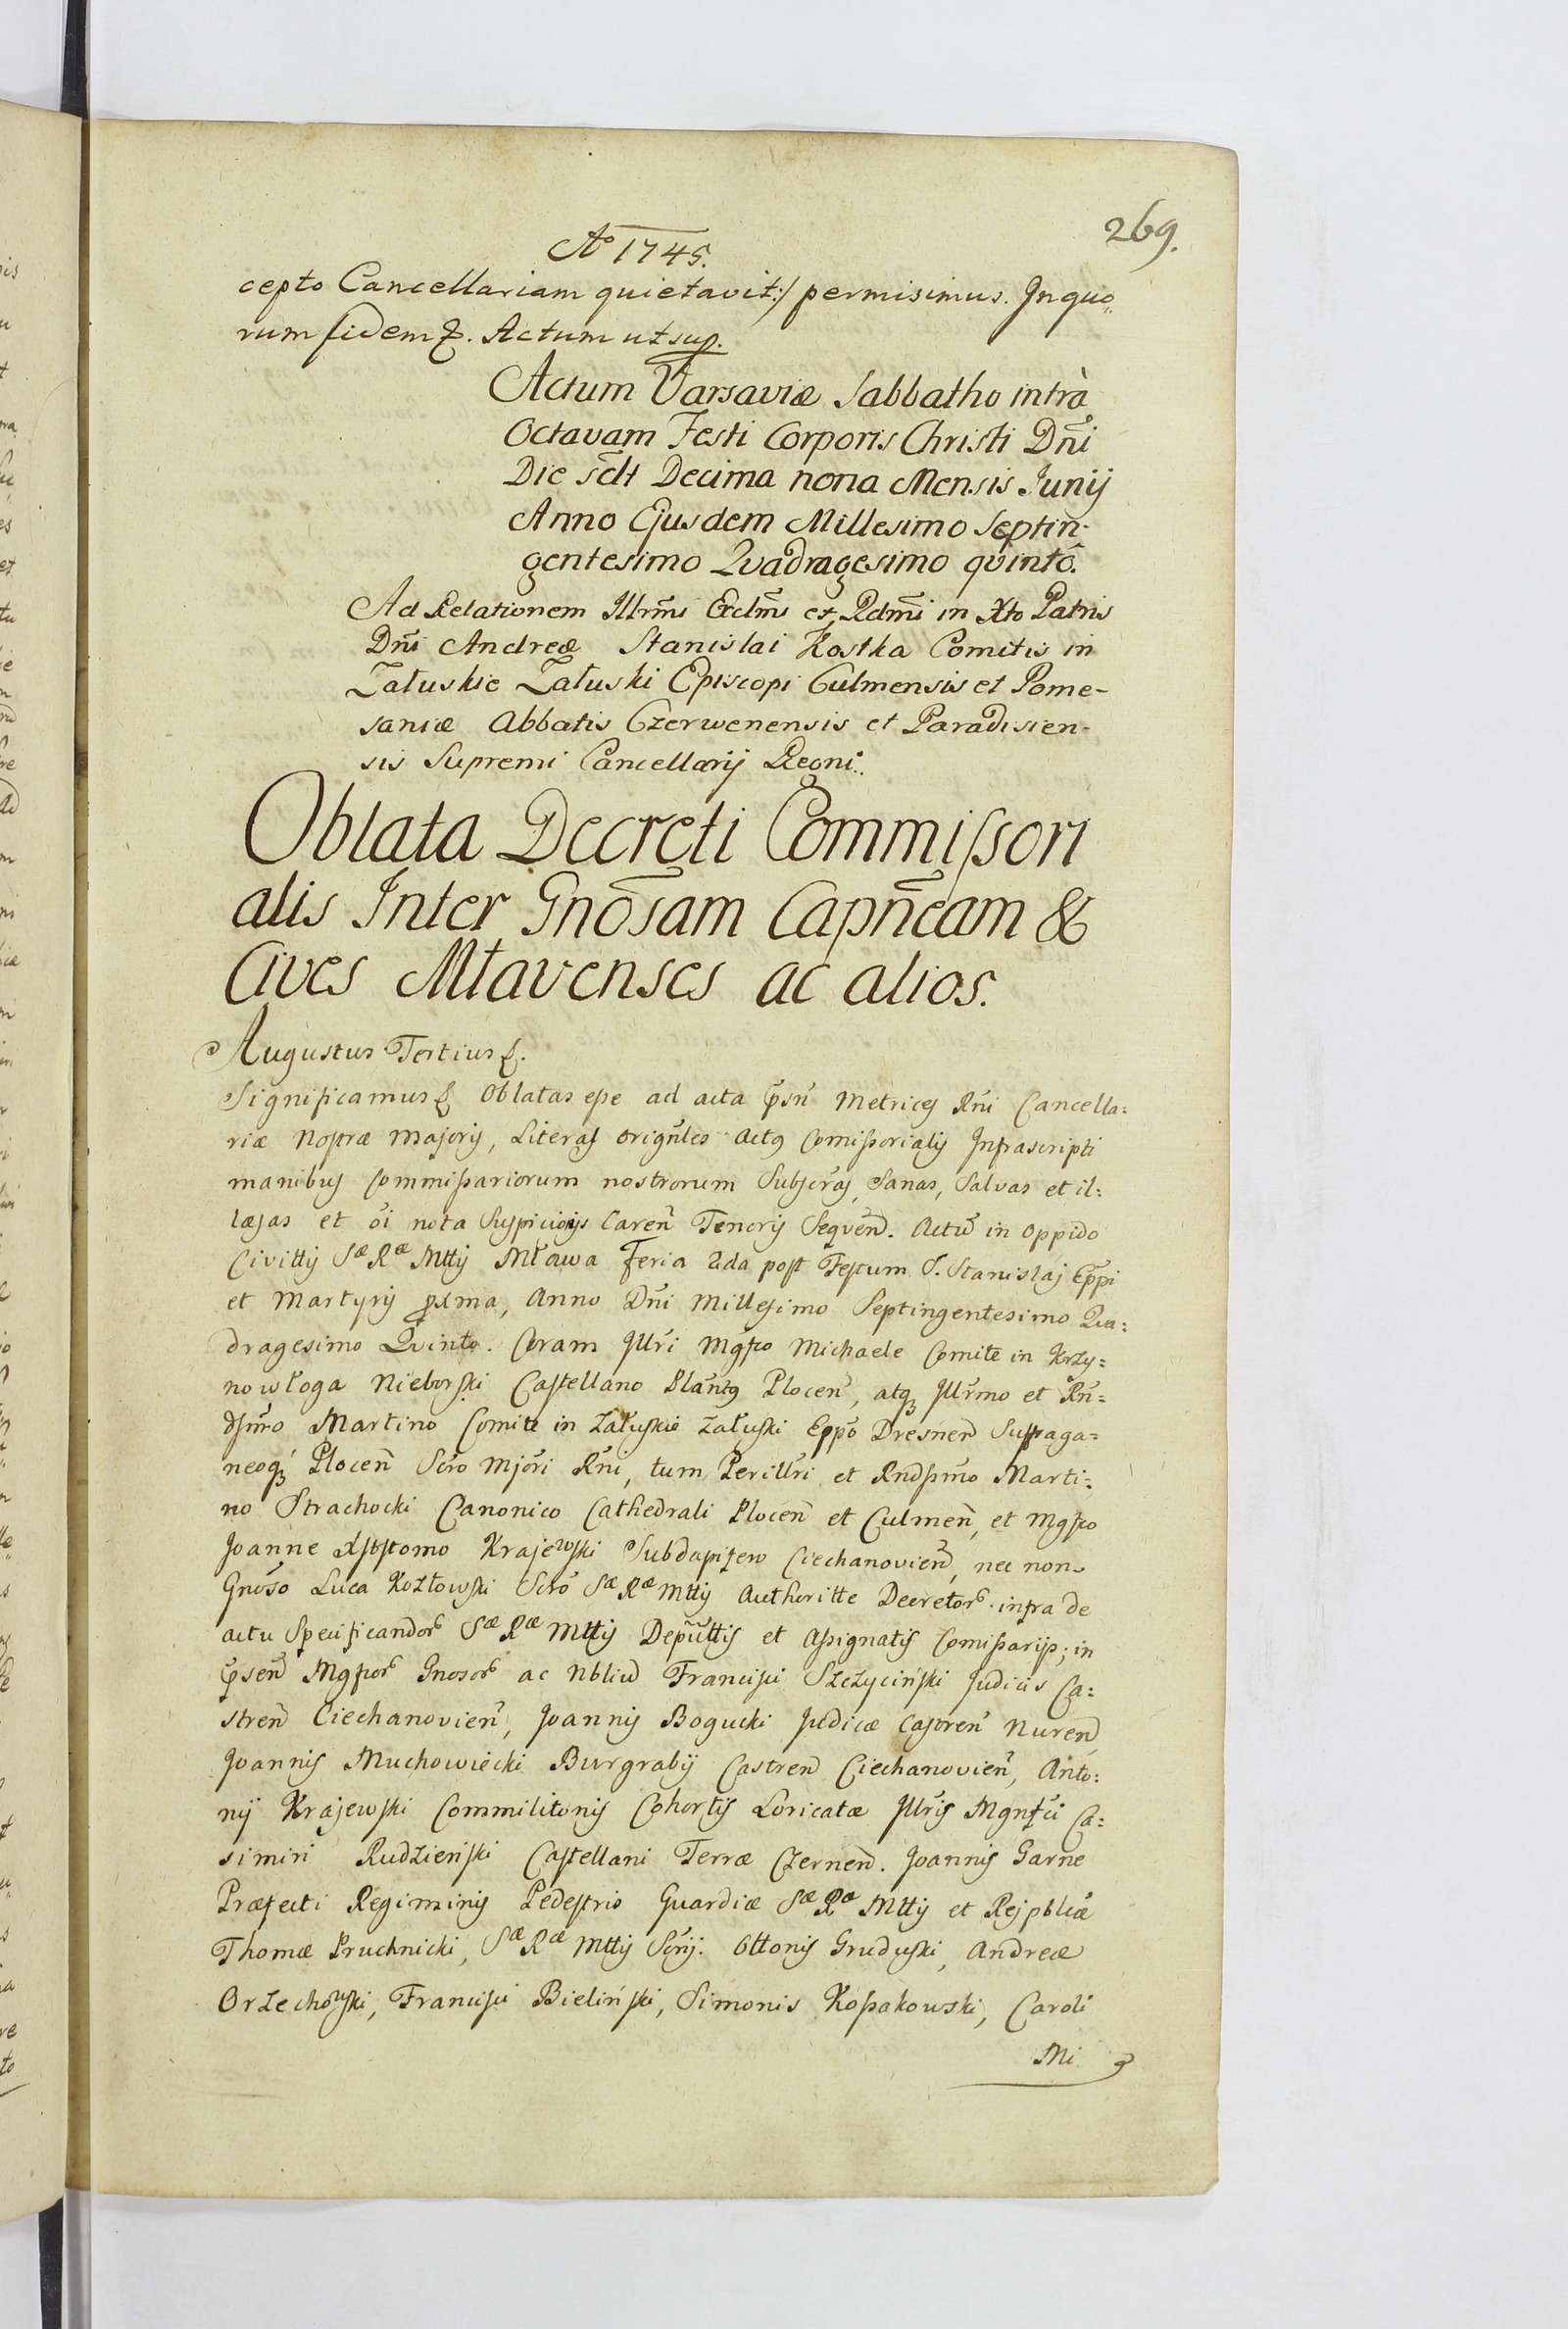 269.
Aº 1745.
cepto Cancellariam quietavit:/ permisimus. In quo„
rum fidem &. Actum ut sup.
Actum Varsaviæ Sabbatho intrà
Octavam Festi Corporis Christi Dñi
Die sclt Decima nona Mensis Junij
Anno Ejusdem Millesimo Septin-
gentesimo Quadragesimo quintô.
Ad Relationem Illrm̃i Exclm̃i et Rdm̃i in Xto Patris
Dñi Andreæ Stanislai Kostka Comitis in
Załuskie Załuski Episcopi Culmensis et Pome-
saniæ Abbatis Czerwenensis et Paradisien-
sis Supremi Cancellarij Regni.
Oblata Decreti Commissori
alis Inter Gnõsam Capñeam &
Cives Mławenses ac alios.
Augustus Tertius &.
Significamus & Oblatas esse ad acta p̃sñ Metrices Rñi Cancella:
riæ Nostræ Majoris, Literas origñles actus Comissorialis Infrascripti
manibus Commissariorum nostrorum Subscras, Sanas, Salvas et il:
læsas et õi nota Suspicionis Careñ Tenoris Sequeñ. Actũ in Oppido
Civittis Sæ Ræ Mttis Mława Feria 2da post Festum S. Stanislai Ep̃pi
et Martyris pxma, Anno Dñi Millesimo Septingentesimo Qua:
dragesimo Quinto. Coram Jllri Mgfco Michaele Comite in Krzy:
nowłoga Nieborski Castellano Plocen̄, atq; Jllrmo et Rñ:
dsm̃o Martino Comite in Załuskie Załuski Eppo Dresneñ Suffraga:
neoq;Ploceñ Scro Mjori Rñi, tum Perillri et Rndssm̃o Marti:
no Strachocki Canonico Cathedrali Ploceñ et Culmeñ, et Mgfco
Joanne Xstomo Krajewski Subdapifero Ciechanovieñ, nec non
Gnoso Luca Kozłowski Scro Sæ Ræ Mttis Authoritte Decretor. infra de
actu Specificandor Sæ Ræ Mttis Deputtis et Assignatis Comissarijs; in
p̃señ Mgfcor Gnosor ac Nbliũ Francisci Szczyciński Judicis Ca:
streñ Ciechanovieñ, Joannis Bogucki Judicæ Castreñ Nureñ
Joannis Muchowiecki Burgrabij Castreñ Ciechanovieñ, Anto:
nij Krajewski Commilitonis Cohortis Loricatæ Jllris Mgnfci Ca:
simiri Rudzieński Castellani Terræ Czerneñ. Joannis Garne
Præfecti Regiminis Pedestris Guardiæ Sæ Ræ Mttis et Rejpblicæ
Thomæ Pruchnicki, Sæ Ræ Mttis Scrij. Ottonis Gruduski, Andreæ
Orzechowski, Francisci Bieliński, Simonis Kossakowski, Caroli
Mi